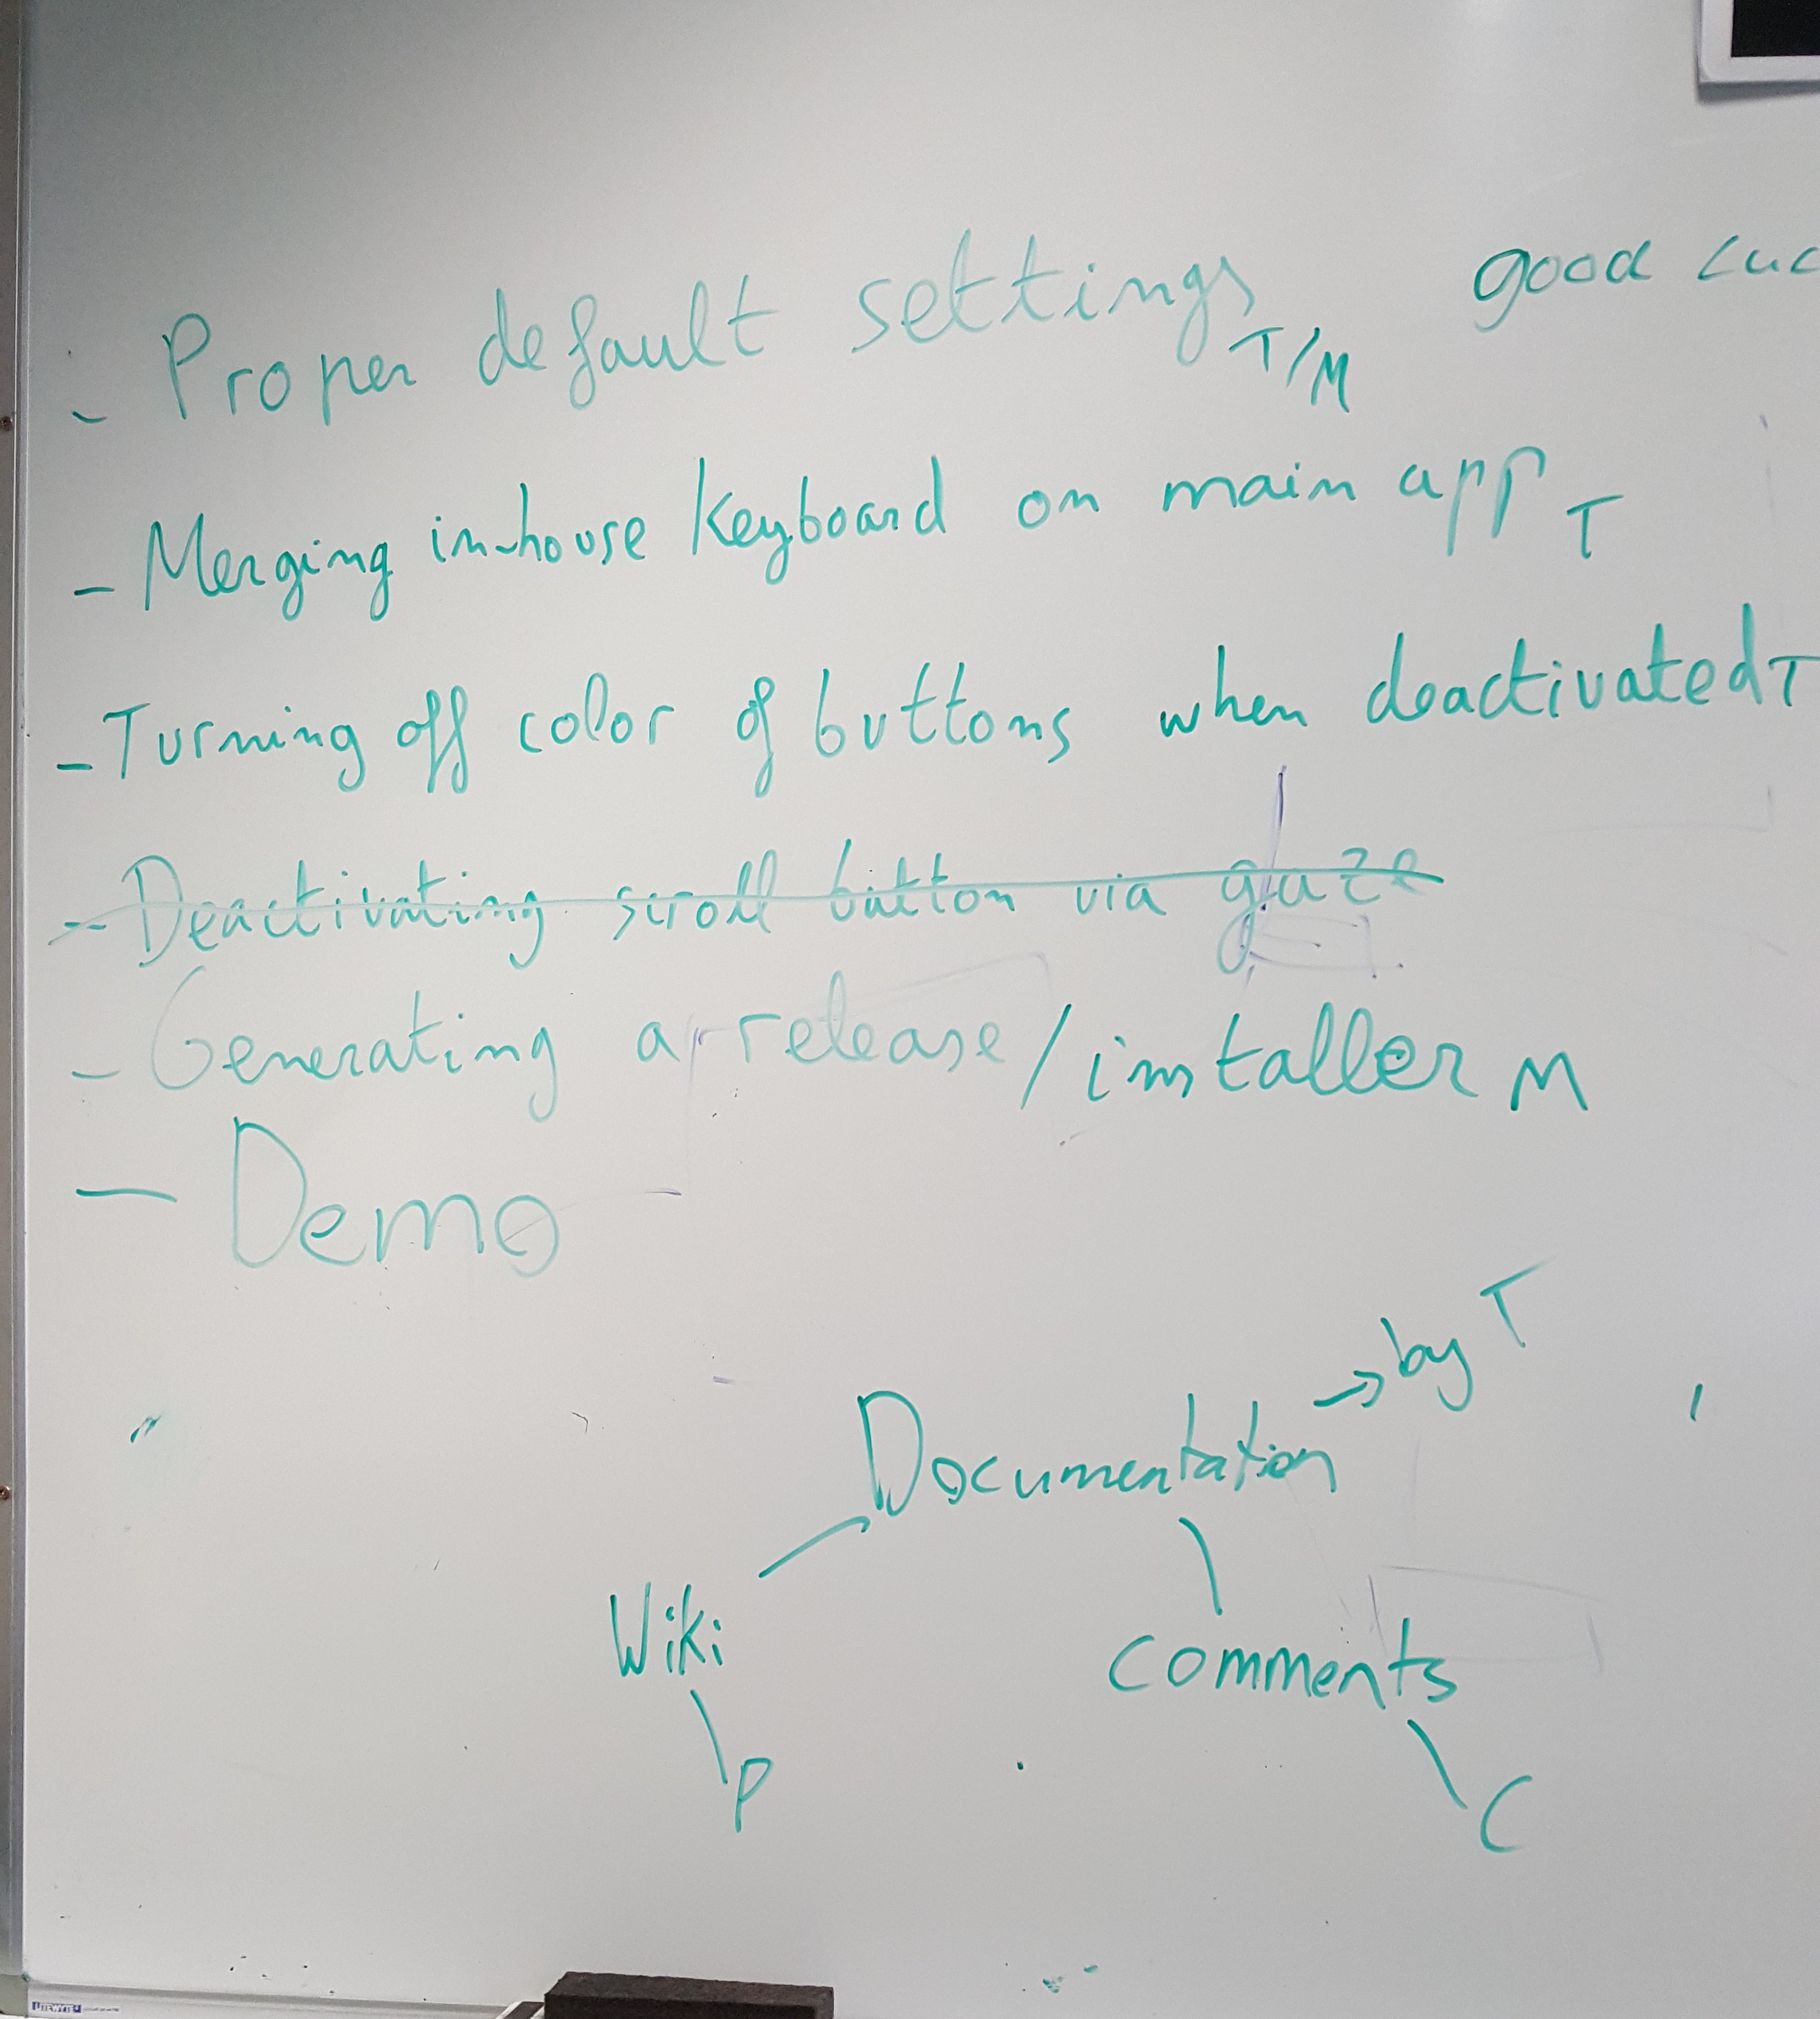 - Proper default settings T/M
good luc
- Merging in-house keyboard on main app T
- Turning off color of buttons when deactivated T
- Deactivating scroll button via gaze
- Generating a release/installer M
- Demo
→ by T
Documentation
Wiki
comments
P
C